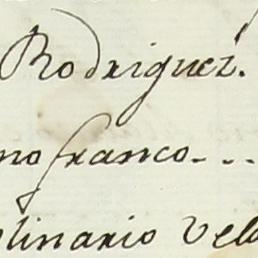 Rodriguez.
no franco - . .
olinario Vela